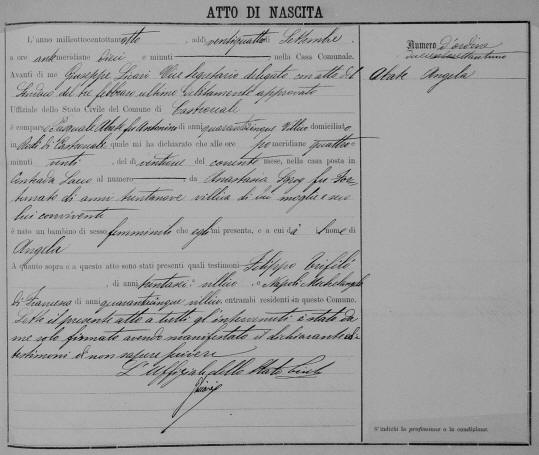 ATTO DI NASCITA
L'anno milleottocentottantotto, addì ventiquattro di Settembre
a ore antimeridiane dieci e minuti nella Casa Comunale.
Avanti di me Giuseppe Vice Segretario delegato con atto del
Sindaco del tre Febbraro ultimo debitamente approvato
Ufficiale dello Stato Civile del Comune di Castroreale
è comparso Pasquale Abate fu Antonino di anni quarantacinque villico domiciliato
in di Castroreale quale mi ha dichiarato che alle ore pomeridiane quattro
minuti venti, del dì ventuno del corrente mese, nella casa posta in
Contrada al numero da Anastasia fu
di anni trentanove villica di lui moglie e seco
lui convivente
è nato un bambino di sesso femminile che egli mi presenta, e a cui dà il nome di
Angela
A quanto sopra e a questo atto sono stati presenti quali testimoni Filippo Trifilò
, di anni villico e Napoli Michelangelo
di anni quarantacinque villico, entrambi residenti in questo Comune.
Letto il presente atto a tutti gl'intervenuti è stato da
me solo firmato avendo manifestato il dichiarante e i
testimoni di non sapere scrivere
L'Uffiziale dello Stato Civile
Numero d'ordine
Abate Angela
S'indichi la professione o la condizione.